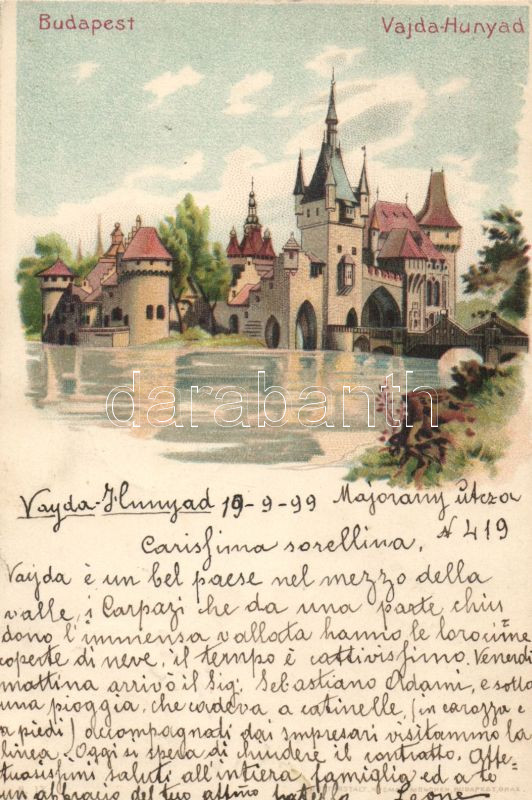 Budapest Vajda-Hunyad
darabanth
Vayda-Hunyad 19-9-99 Majorany utcza
N 419
Carissima sorellina,
Vajda è un bel paese nel mezzo della
valle, i Carpazi che da una parte chiu
dono l'immensa vallata hanno le loro cime
coperte di neve, il tempo è cattivissimo. Venerdi
mattina arrivò il Sig. Sebastiano Adami, e sotto
una pioggia, che cadeva a catinelle (in carozza e
a piedi) accompagnati dai impresari visitammo la
linea. Oggi si spera di chiudere il contratto. Affe-
tuosissimi saluti all'intiera famiglia ed a te
un abbraccio del tuo affmo fratello